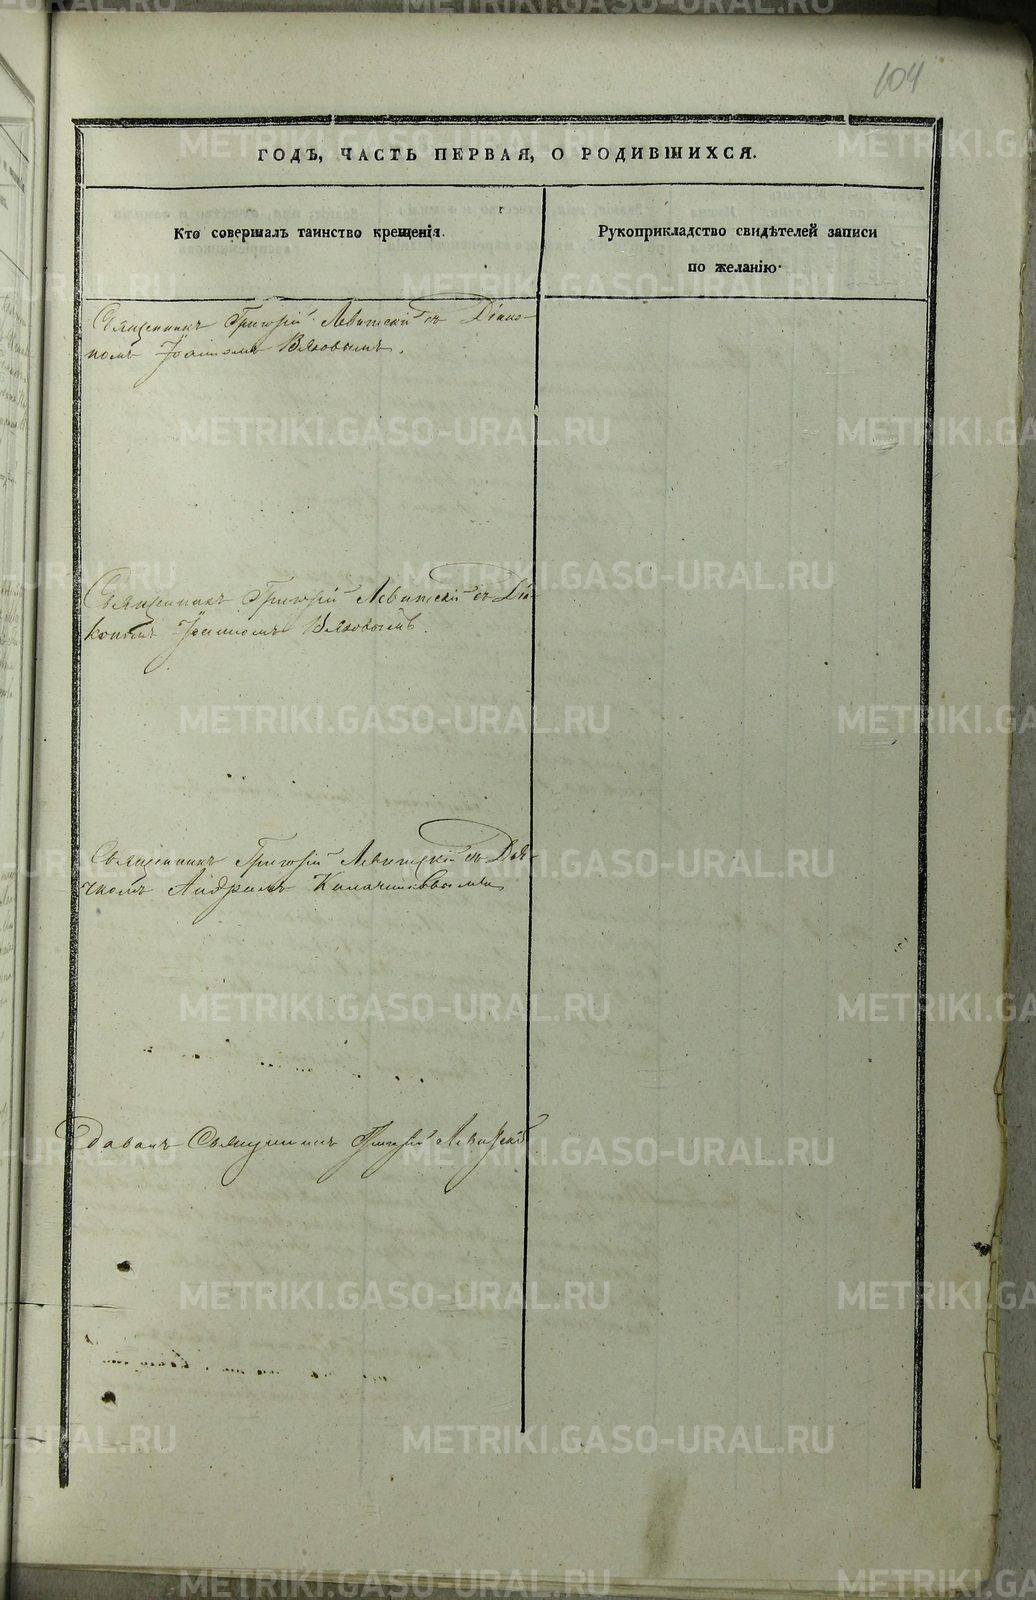 104
ГОДЪ, ЧАСТЬ ПЕРВАЯ, О РОДИВШИХСЯ.
Кто совершалъ таинство крещенія.
Рукоприкладство свидѣтелей записи
по желанію.
Священникъ Григорій Левитскій съ Діако-
номъ Іоанномъ Вяковымъ.
Священникъ Григорій Левитскій съ Діа-
кономъ Іоанномъ Вяковымъ.
Священникъ Григорій Левитскій съ Дья-
чкомъ Андреемъ
Священникъ Григорій Левитскій
METRIKI.GASO-URAL.RU